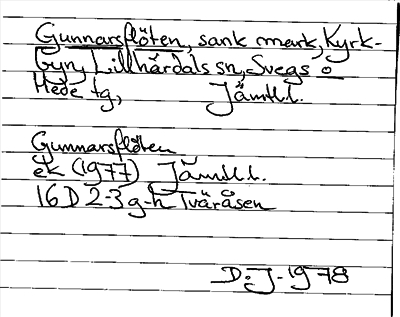 Gunnarsflöten, sank mark, Kyrk-
byn, Lillhärdals sn, Svegs o
Hede tg, Jämtl.l.
Gunnarsflöten
ek (1977) Jämtl.l.
16D 2-3 g-h Tväråsen
D.J. 1978